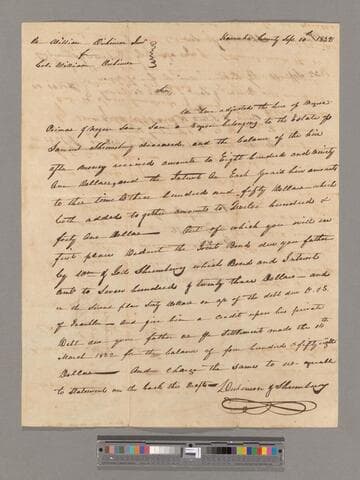 Mr William Dickinson Junr
&
Col. William Dickinson
Kanawha County Sep. 10th 1832
Sir,
We have adjusted the hire of Negroe
Prince & Negroe Sam a Negroe belonging to the Estate of
Samuel Shrewsbury deceased, and the balance of the hire
after money received amounts to Eight hundred and Ninety
One Dollars, and the Interest on Each Years hire amounts
to this time to three hundred and fifty Dollars which
both added together amounts to twelve hundred &
forty One Dollars — Out of which you will in
first place Deduct the Joint Bond due your father
by Wm & Joel Shrewsbury which Bond and Interest
amt to Seven hundred & twenty three Dollars — and
in the second place Sixty Dollars on a/c of the debt due
of Franklin — and give him a Credit upon his private
Debt due your father as Settlement made the
March 1832 for the balance of four hundred & fifty eight
Dollars — And Charge the same to us agreeable
to Statements on the back
Dickinson & Shrewsbury